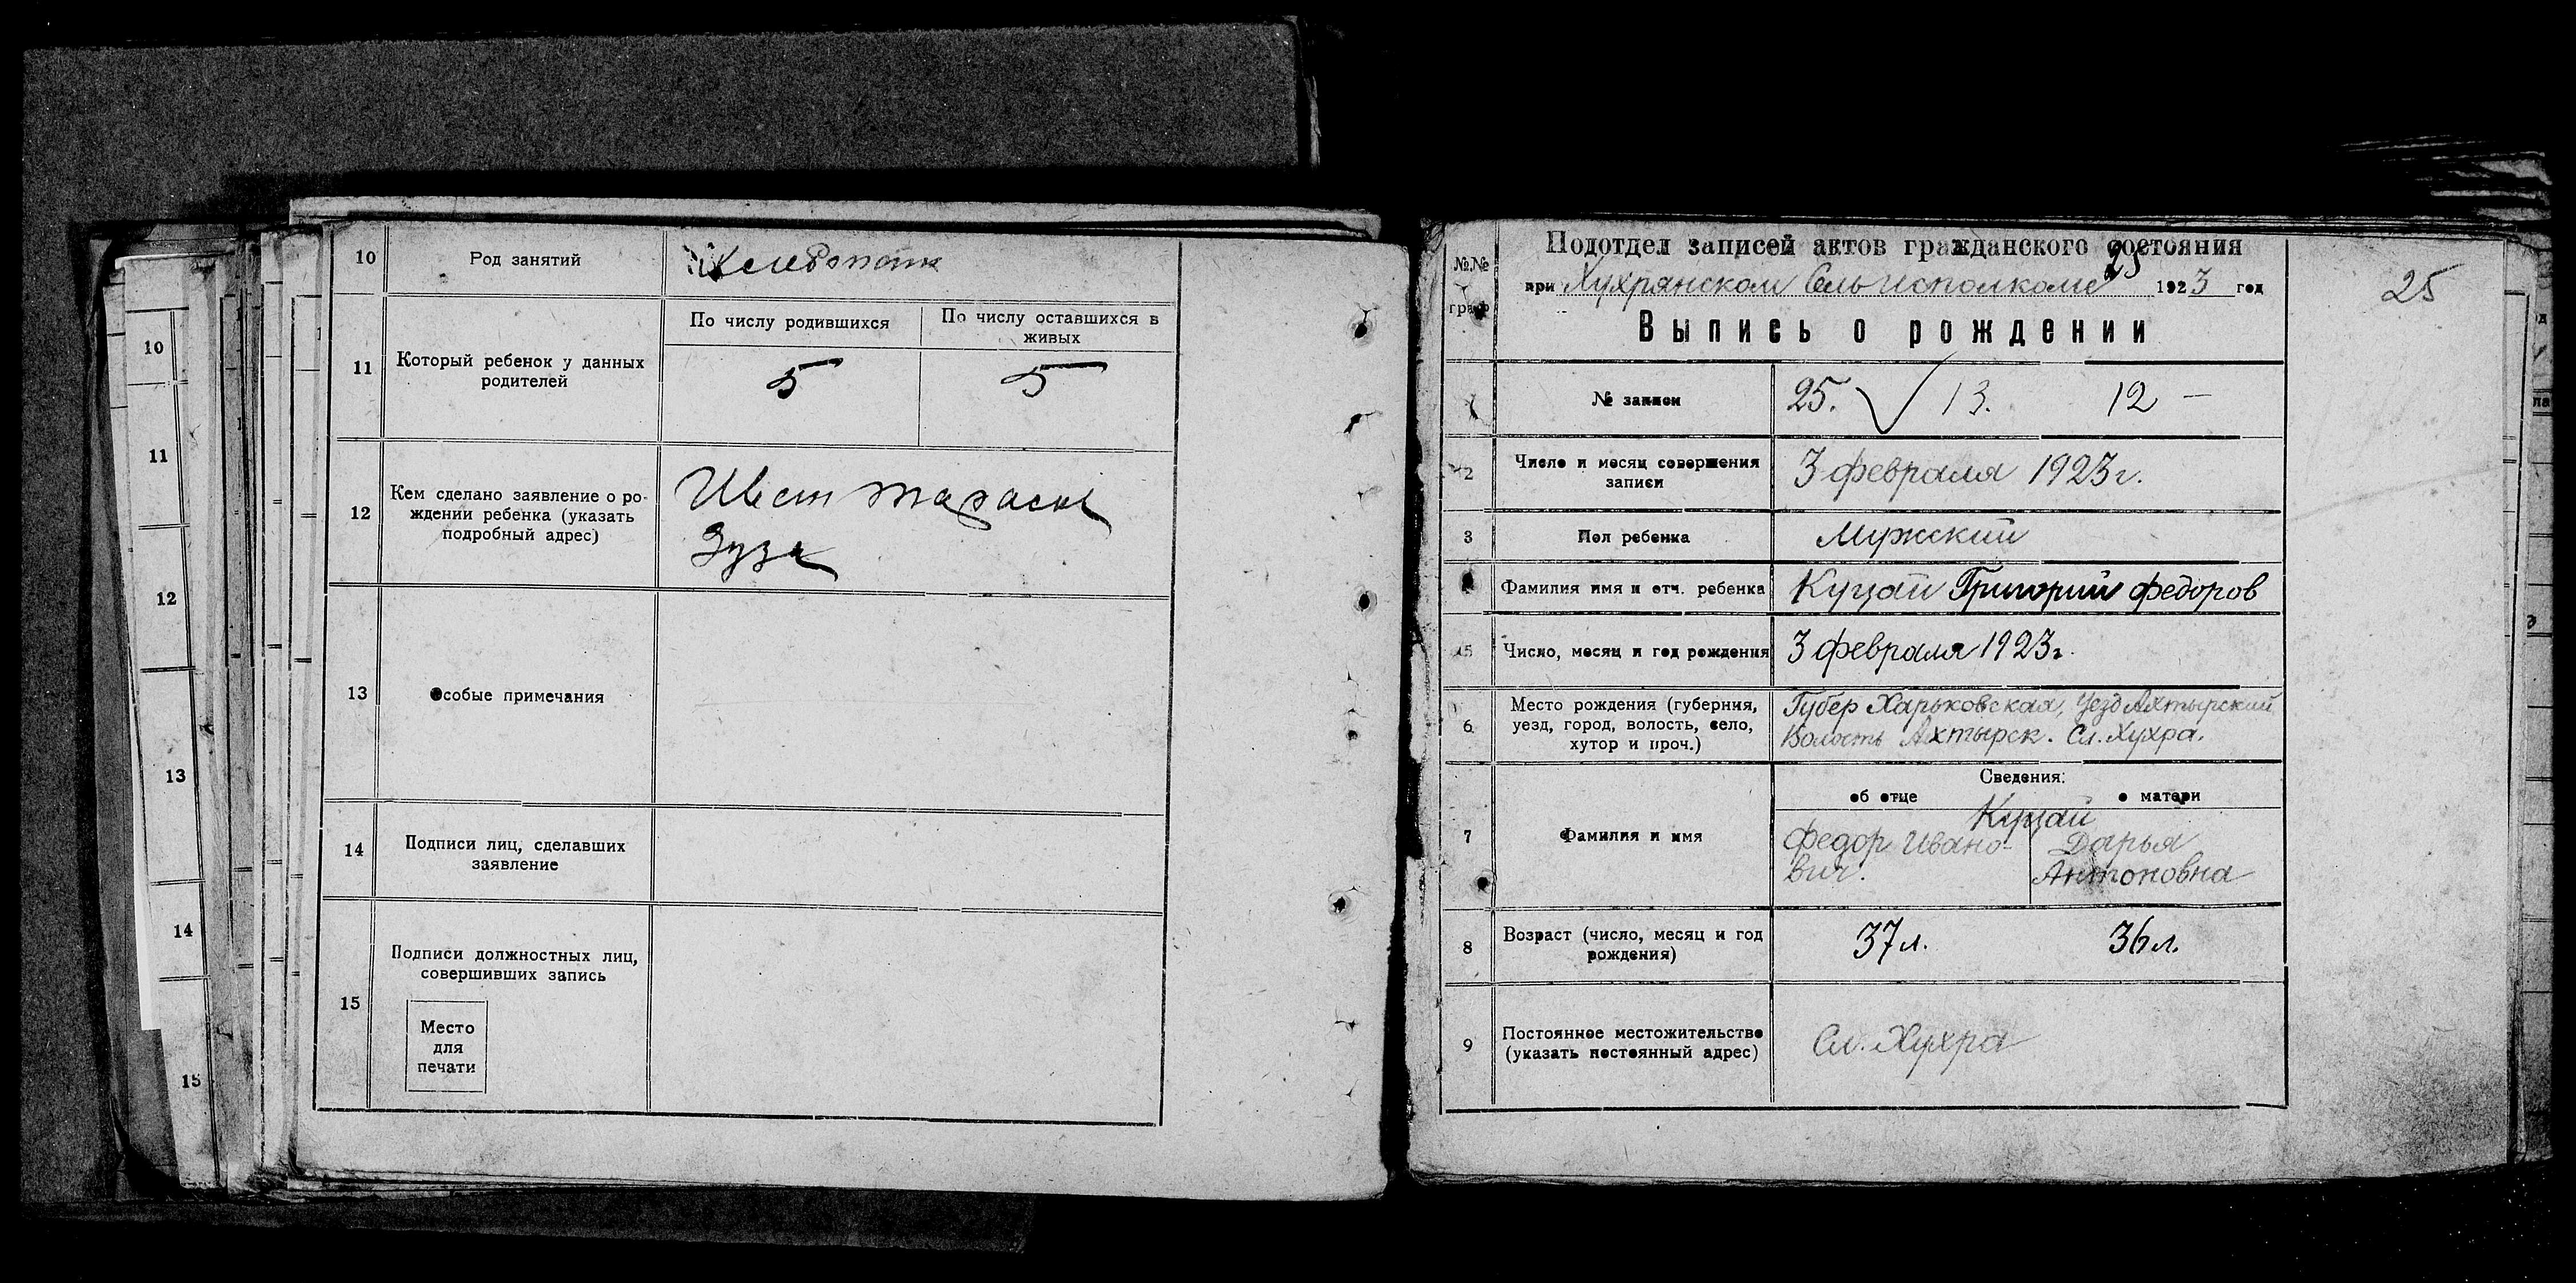 10
Род занятий
Хлебопаш
11
Который ребенок у данных
родителей
По числу родившихся
По числу оставшихся в
живых
5
5
12
Кем сделано заявление о ро-
ждении ребенка (указать
подробный адрес)
Зуза
13
Особые примечания
14
Подписи лиц, сделавших
заявление
15
Подписи должностных лиц,
совершивших запись
Место
для
печати
10
11
12
13
14
15
№№
граф
Подотдел записей актов гражданского состояния
25
при Хухрянском Сельисполкоме 1923 год
25
Выпись о рождении
№ записи
25. 13. 12 —
2
Число и месяц совершения
записи
3 февраля 1923 г.
3
Пол ребенка
Мужский
Фамилия имя и отч. ребенка
Куцай Григорий Федоров
5
Число, месяц и год рождения
3 февраля 1923 г.
6
Место рождения (губерния,
уезд, город, волость, село,
хутор и проч.)
Губер Харьковская, Уезд Ахтырский
Волость Ахтырск. Сл. Хухра.
Сведения:
об отце
о матери
7
Фамилия и имя
Куцай
Федор Ивано-
вич.
Дарья
Антоновна
8
Возраст (число, месяц и год
рождения)
37 л.
36 л.
9
Постоянное местожительство
(указать постоянный адрес)
Сл. Хухра